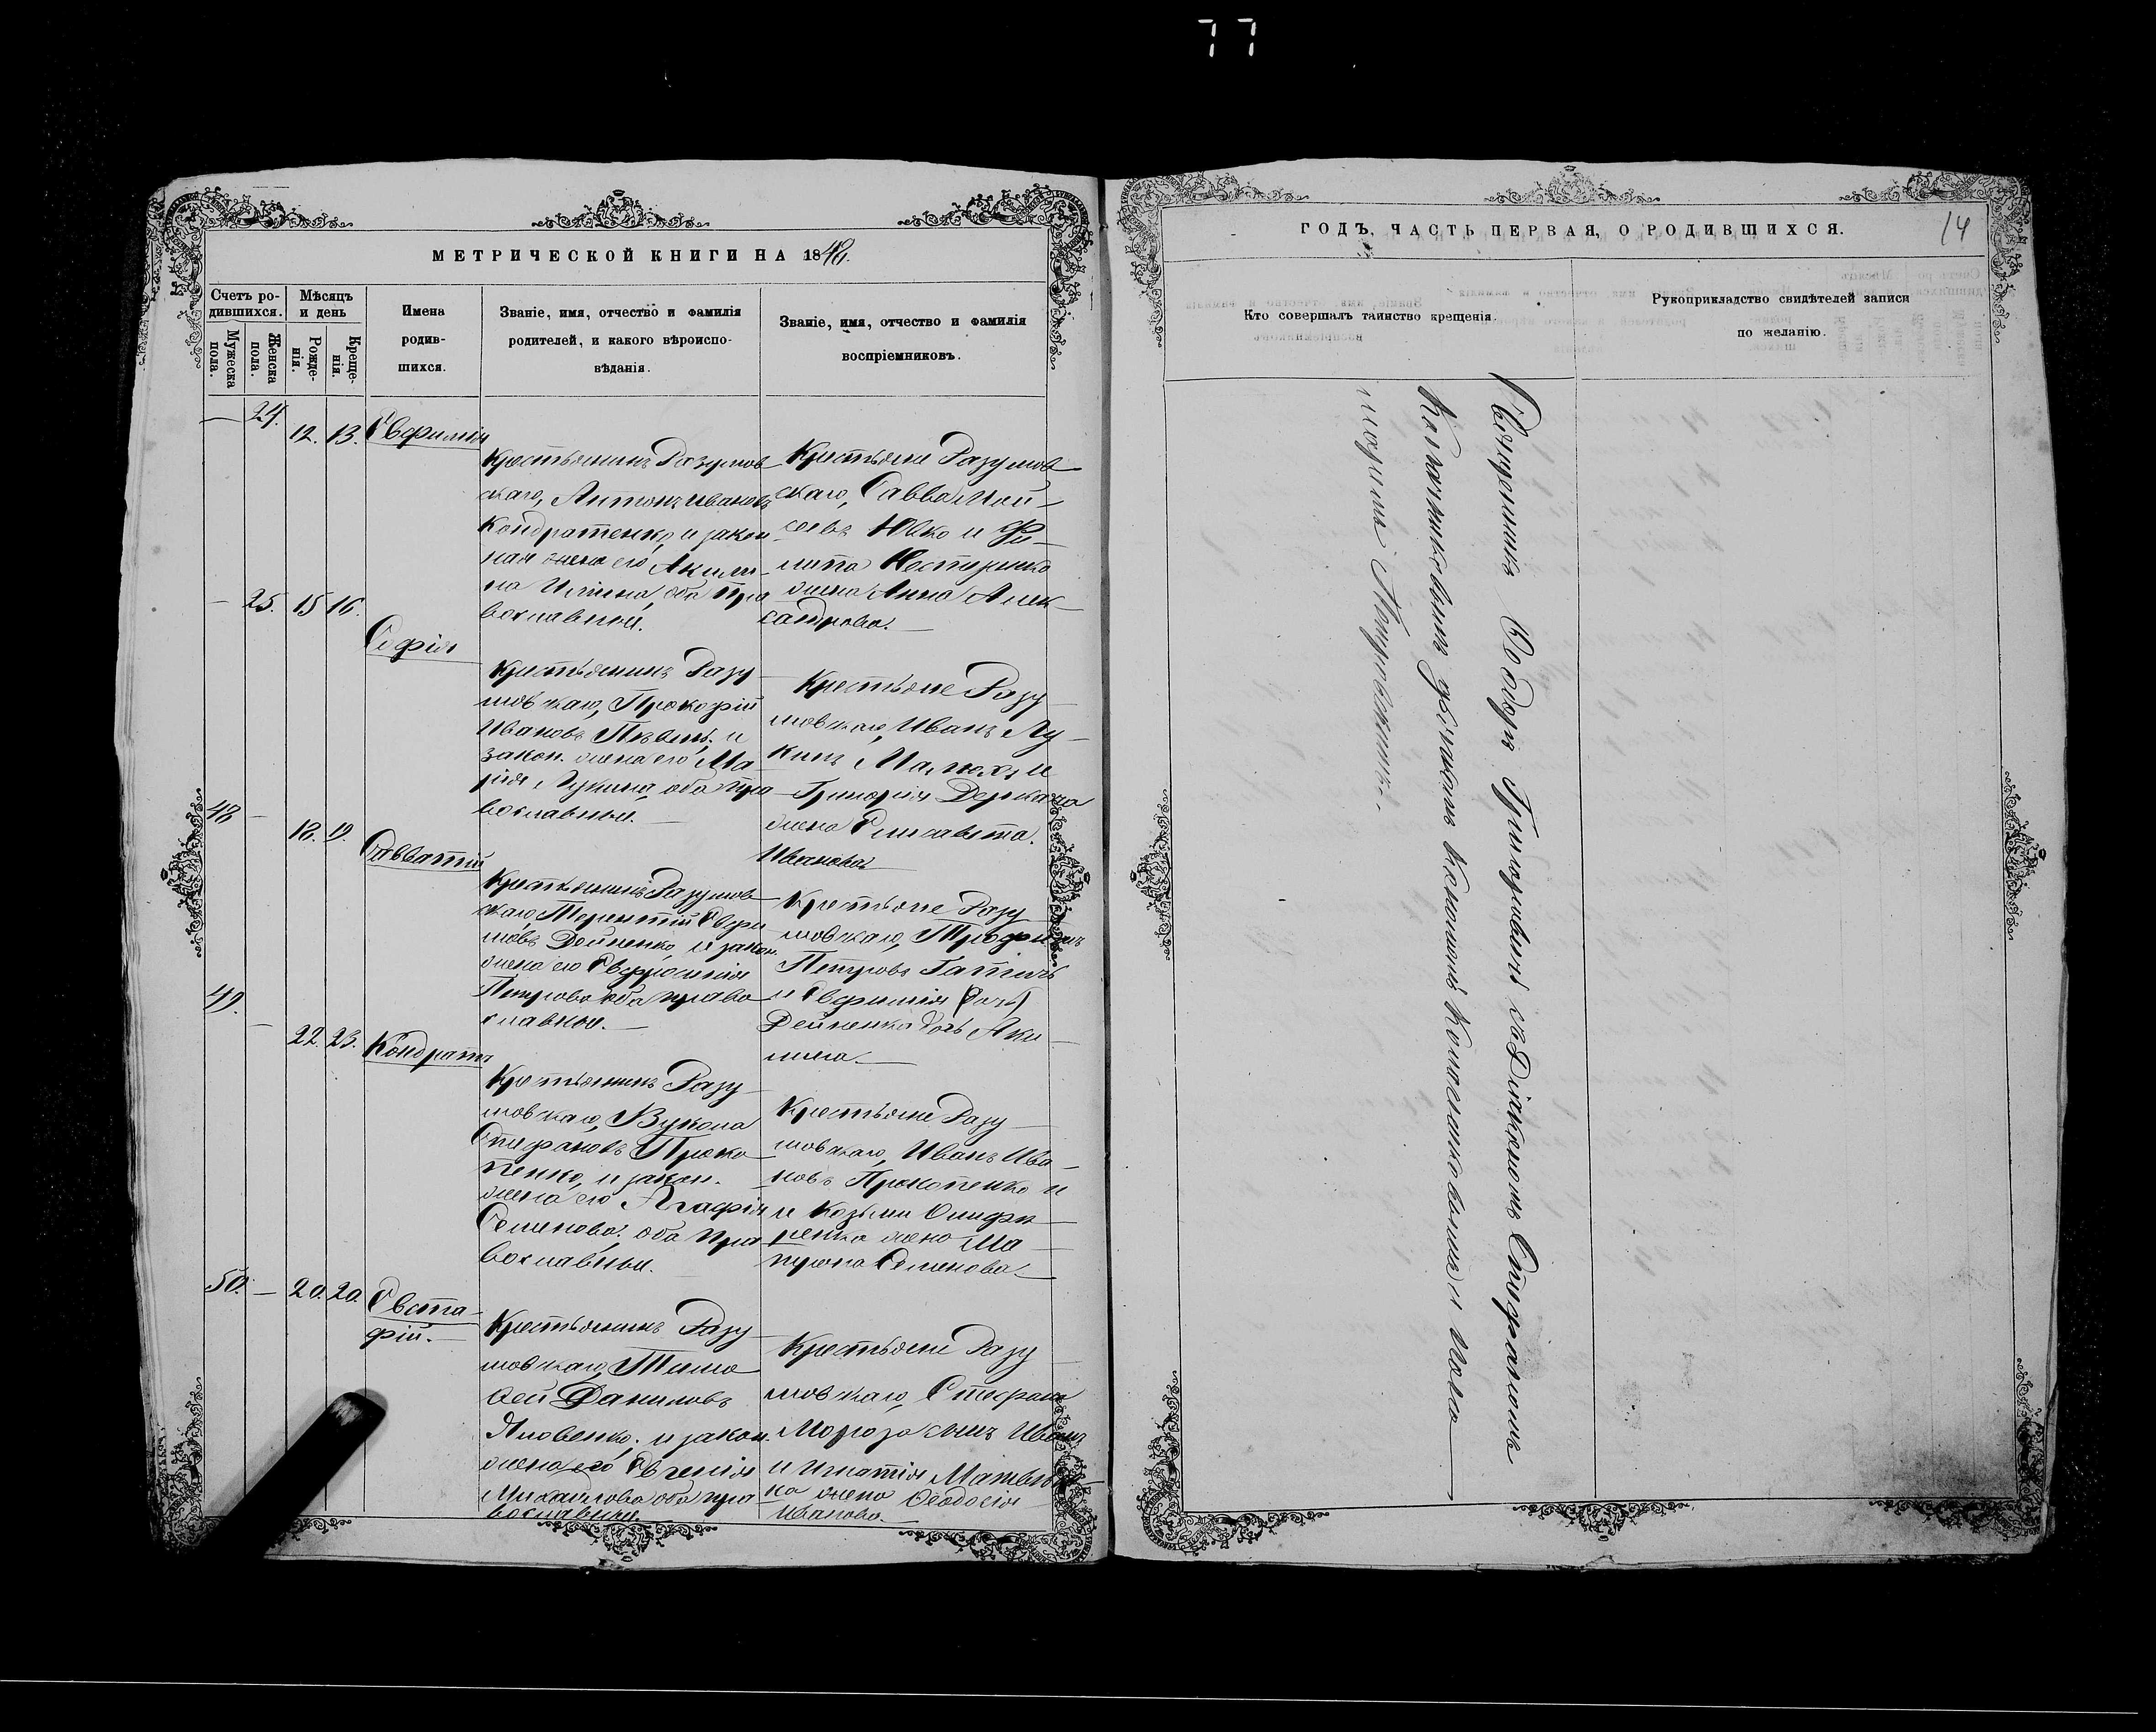 77
МЕТРИЧЕСКОЙ КНИГИ НА 1848.
Счетъ ро-
дившихся.
Мужеска
пола.
Женска
пола.
Мѣсяцъ
и день
Рожде-
нія.
Креще-
нія.
Имена
родив-
шихся.
Званіе, имя, отчество и фамилія
родителей, и какого вѣроиспо-
вѣданія.
Званіе, имя, отчество и фамилія
воспріемниковъ.
— 24. 12. 13. Евфимія
Крестьянинъ Разумов
скаго, Антонъ Ивановъ
Кондратенко, и закон
ная жена его Акили-
на Ильина, оба пра
вославныи.
Крестьяне Разумов
скаго, Савва Мой-
сеевъ Ювко и Фи-
липа Нестеренко
жена Анна Алек-
сандрова.
— 25. 15 16. Софія
Крестьянинъ Разу
мовскаго, Прокофій
Ивановъ и
закон. жена его Ма
рія Лукина, оба пра
вославныи.
Крестьяне Разу
мовскаго, Иванъ Лу
кинъ и
Григорія Деркача
жена Елисавета
Иванова
48 — 18. 19. Савватій
Крестьянинъ Разумов
скаго, Терентій
Дейненко, и закон.
жена его Евфросинія
Петрова оба право
славныи.
Крестьяне Разу
мовскаго, Трофимъ
Петровъ
и Евфимія
Дейненка дочь Аки
мова.
49. — 22. 23. Кондратъ
Крестьянинъ Разу
мовскаго, Вукола
Стефановъ Проко
пенко, и закон.
жена его Агафія
Семенова. оба пра
вославныи.
Крестьяне Разу
мовскаго, Иванъ Ива-
новъ Прокопенко и
и Козьми Онифи
ренка жена Ма
трона Семенова.
50. — 20. 20. Евста-
фій.
Крестьянинъ Разу
мовскаго, Тимо
ѳей Даниловъ
Яковенко. и закон.
жена его Евгенія
Михайлова оба пра
вославныи.
Крестьяне Разу
мовскаго, Стефана
Мороза сынъ Иванъ
и Игнатія
ка жена Ѳеодосія
Иванова.
ГОДЪ, ЧАСТЬ ПЕРВАЯ, О РОДИВШИХСЯ.
14
Кто совершалъ таинство крещенія.
Рукоприкладство свидѣтелей записи
по желанію.
Священникъ Ѳеодоръ Григоровичъ съ Діакономъ Стефаномъ